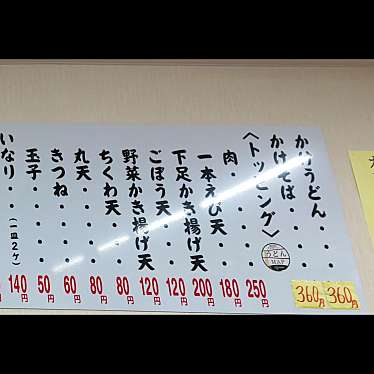 かけうどん・・・360円
かけそば・・・・360円
〈トッピング〉
肉・・・・・・250円
一本えび天・・180円
下足かき揚げ天 200円
ごぼう天・・・120円
野菜かき揚げ天 120円
ちくわ天・・・80円
丸天・・・・・80円
きつね・・・・60円
玉子・・・・・50円
いなり・・(一皿2ケ) 140円
うどん
MAP